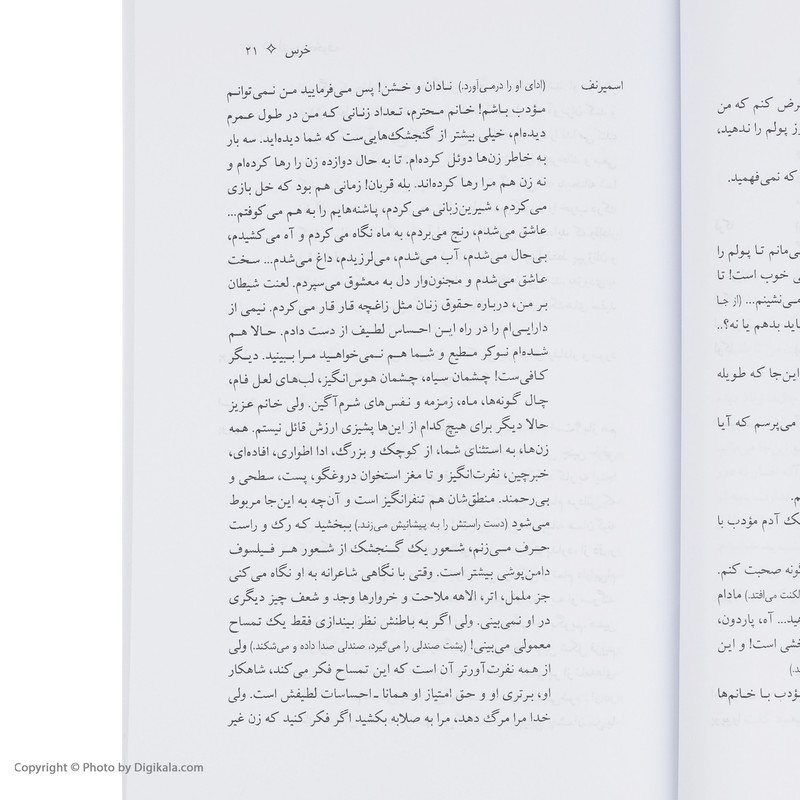 خرس ✧ ۲۱
اسمیرنف (ادای او را درمی‌آورد.) نادان و خشن! پس می‌فرمایید من نمی‌توانم
مؤدب باشم! خانم محترم، تعداد زنانی که من در طول عمرم
دیده‌ام، خیلی بیشتر از گنجشک‌هایی‌ست که شما دیده‌اید. سه بار
به خاطر زن‌ها دوئل کرده‌ام. تا به حال دوازده زن را رها کرده‌ام و
نه زن هم مرا رها کرده‌اند. بله قربان! زمانی هم بود که خل بازی
می‌کردم ، شیرین‌زبانی می‌کردم، پاشنه‌هایم را به هم می‌کوفتم...
عاشق می‌شدم، رنج می‌بردم، به ماه نگاه می‌کردم و آه می‌کشیدم،
بی‌حال می‌شدم، آب می‌شدم، می‌لرزیدم، داغ می‌شدم... سخت
عاشق می‌شدم و مجنون‌وار دل به معشوق می‌سپردم. لعنت شیطان
بر من، درباره حقوق زنان مثل زاغچه قار قار می‌کردم. نیمی از
دارایی‌ام را در راه این احساس لطیف از دست دادم. حالا هم
شده‌ام نوکر مطیع و شما هم نمی‌خواهید مرا ببینید. دیگر
کافی‌ست! چشمان سیاه، چشمان هوس‌انگیز، لب‌های لعل فام،
چال گونه‌ها، ماه، زمزمه و نفس‌های شرم‌آگین. ولی خانم عزیز
حالا دیگر برای هیچ‌کدام از این‌ها پشیزی ارزش قائل نیستم. همه
زن‌ها، به استثنای شما، از کوچک و بزرگ، ادا اطواری، افاده‌ای،
خبرچین، نفرت‌انگیز و تا مغز استخوان دروغگو، پست، سطحی و
بی‌رحمند. منطق‌شان هم تنفرانگیز است و آن‌چه به این‌جا مربوط
می‌شود (دست راستش را به پیشانیش می‌زند.) ببخشید که رک و راست
حرف می‌زنم، شعور یک گنجشک از شعور هر فیلسوف
دامن‌پوشی بیشتر است. وقتی با نگاهی شاعرانه به او نگاه می‌کنی
جز ململ، اتر، الاهه ملاحت و خروارها وجد و شعف چیز دیگری
در او نمی‌بینی. ولی اگر به باطنش نظر بیندازی فقط یک تمساح
معمولی می‌بینی! (پشت صندلی را می‌گیرد، صندلی صدا داده و می‌شکند.) ولی
از همه نفرت‌آورتر آن است که این تمساح فکر می‌کند، شاهکار
او، برتری او و حق امتیاز او همانا ـ احساسات لطیفش است. ولی
خدا مرا مرگ دهد، مرا به صلابه بکشید اگر فکر کنید که زن غیر
عرض کنم که من
پولم را ندهید،
که نمی‌فهمید.
می‌مانم تا پولم را
خوب است! تا
می‌نشینم... (از جا
باید بدهم یا نه؟..
این‌جا که طویله
می‌پرسم که آیا
یک آدم مؤدب با
گونه صحبت کنم.
لکنت می‌افتد.) مادام
آه، پاردون،
است! و این
مؤدب با خانم‌ها
Copyright © Photo by Digikala.com